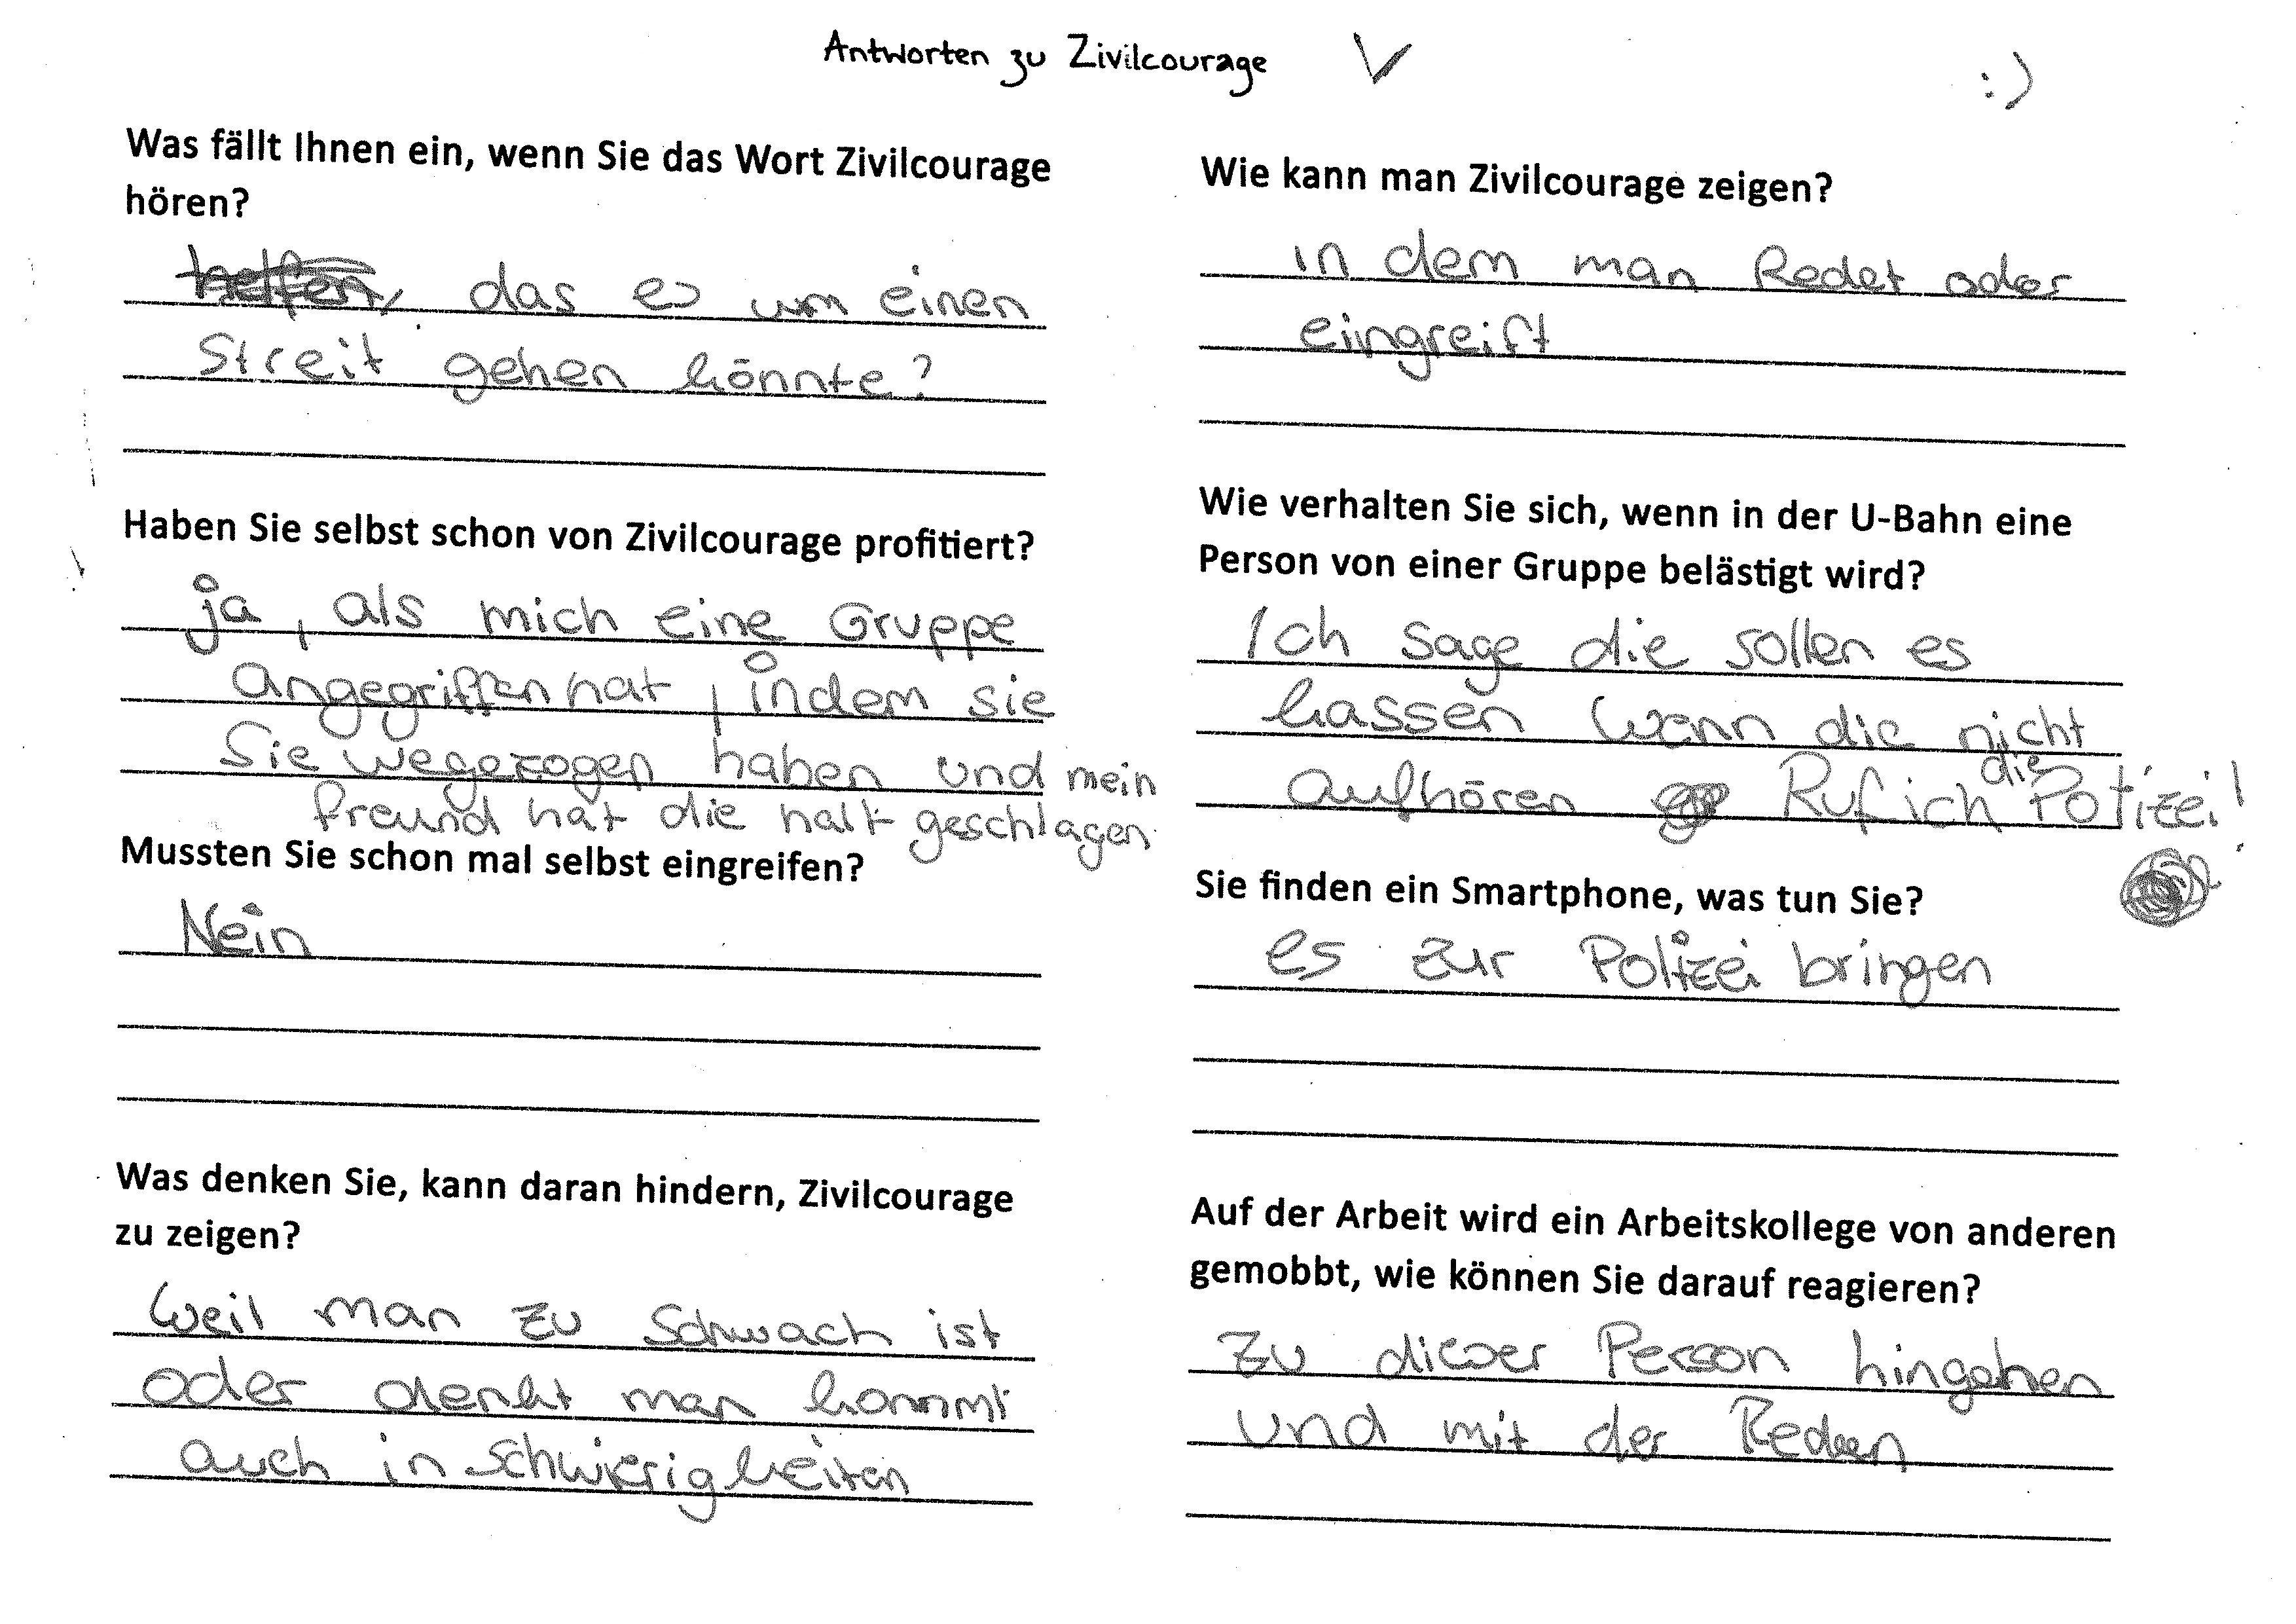 Antworten zu Zivilcourage
:)
Was fällt Ihnen ein, wenn Sie das Wort Zivilcourage
hören?
helfen, das es um einen
Streit gehen könnte?
Haben Sie selbst schon von Zivilcourage profitiert?
ja, als mich eine Gruppe
angegriffen hat, indem sie
Sie wegezogen haben und mein
freund hat die halt geschlagen.
Mussten Sie schon mal selbst eingreifen?
Nein
Was denken Sie, kann daran hindern, Zivilcourage
zu zeigen?
Weil man zu Schwach ist
oder denkt man kommt
auch in schwierigkeiten
Wie kann man Zivilcourage zeigen?
in dem man Redet oder
eingreift
Wie verhalten Sie sich, wenn in der U-Bahn eine
Person von einer Gruppe belästigt wird?
Ich sage die sollen es
lassen wenn die nicht
aufhören Ruf ich die Polizei!
Sie finden ein Smartphone, was tun Sie?
es zur Polizei bringen
Auf der Arbeit wird ein Arbeitskollege von anderen
gemobbt, wie können Sie darauf reagieren?
Zu dieser Person hingehen
und mit der Reden